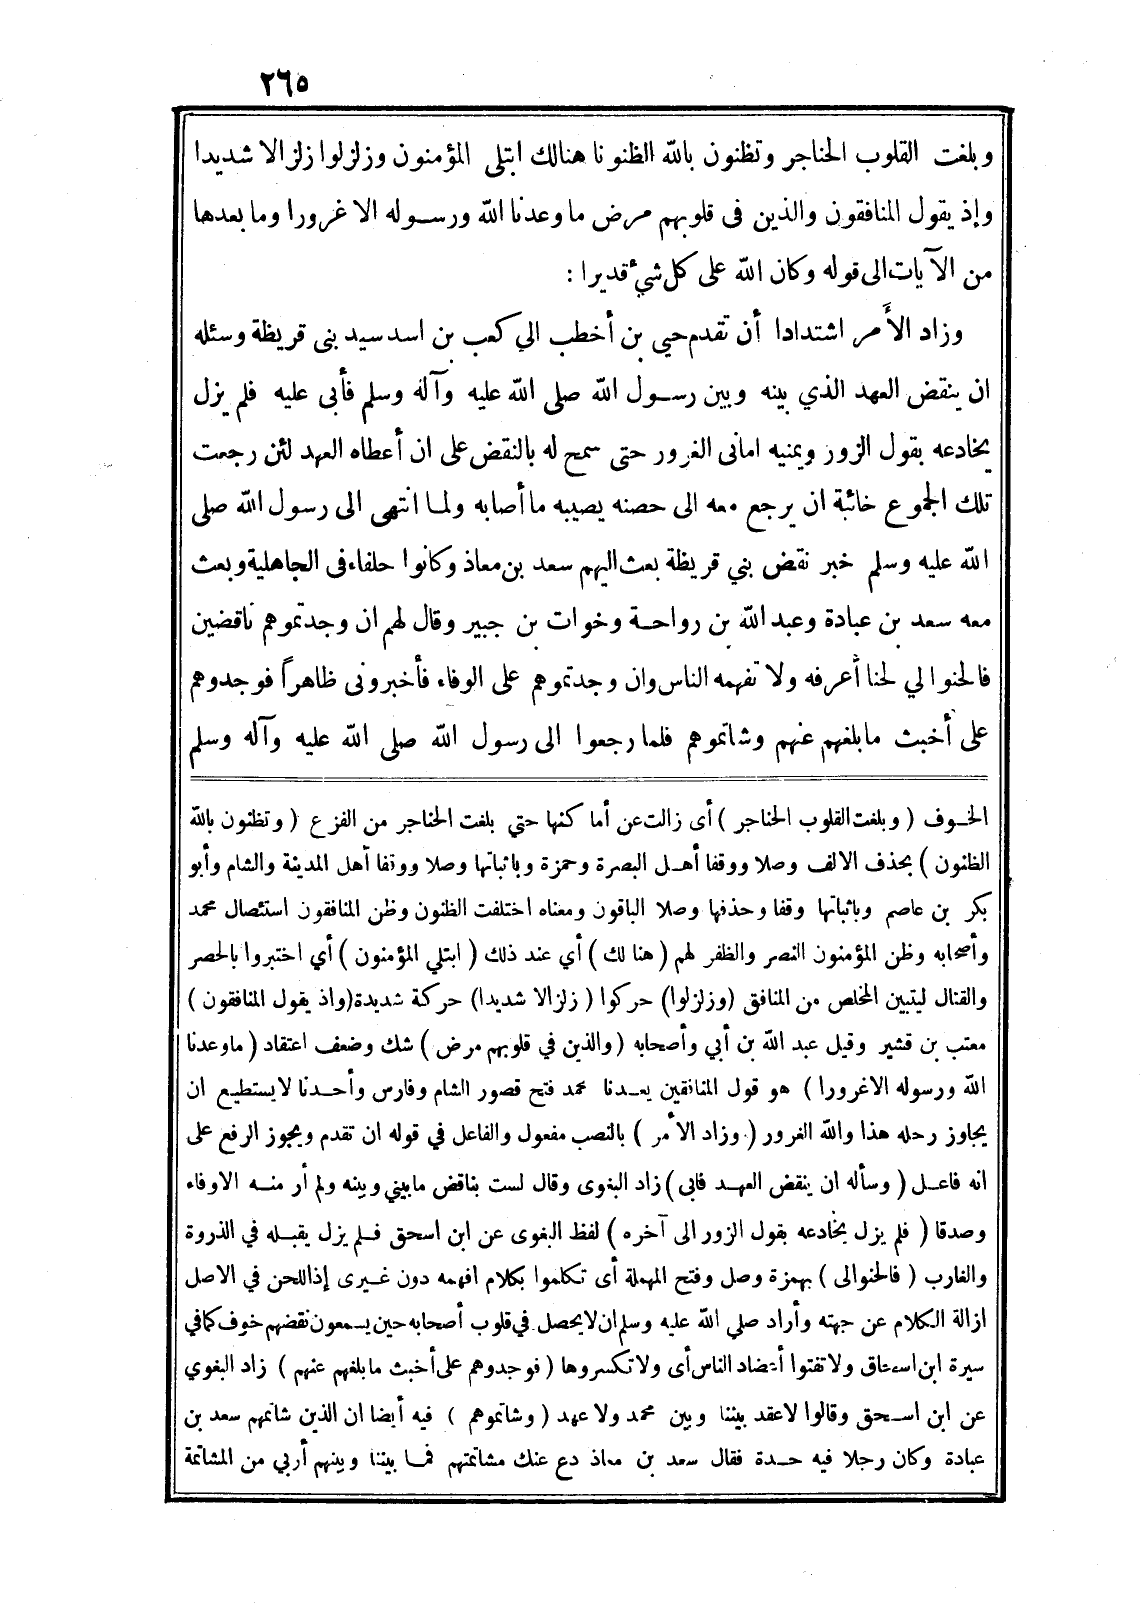 ٢٦٥
وبلغت القلوب الحناجر وتظنون بالله الظنونا هنالك ابتلى المؤمنون وزلزلوا زلزالا شديدا
وإذ يقول المنافقون والذين فى قلوبهم مرض ما وعدنا الله ورسوله الا غرورا وما بعدها
من الآيات الى قوله وكان الله على كل شئ قديرا :
وزاد الأمر اشتدادا أن تقدم حيى بن أخطب الي كعب بن اسد سيد بنى قريظة وسئله
ان ينقض العهد الذي بينه وبين رسول الله صلى الله عليه وآله وسلم فأبى عليه فلم يزل
يخادعه بقول الزور ويمنيه امانى الغرور حتى سمح له بالنقض على ان أعطاه العهد لئن رجعت
تلك الجموع خائبة ان يرجع معه الى حصنه يصيبه ما أصابه ولما انتهى الى رسول الله صلى
الله عليه وسلم خبر نقض بني قريظة بعث اليهم سعد بن معاذ وكانوا حلفاء فى الجاهلية وبعث
معه سعد بن عبادة وعبد الله بن رواحة وخوات بن جبير وقال لهم ان وجدتموهم ناقضين
فالحنوا لي لحنا أعرفه ولا تفهمه الناس وان وجدتموهم على الوفاء فأخبرونى ظاهراً فوجدوهم
على أخبث ما بلغهم عنهم وشاتموهم فلما رجعوا الى رسول الله صلى الله عليه وآله وسلم
الخوف ( وبلغت القلوب الحناجر ) أى زالت عن أماكنها حتي بلغت الحناجر من الفزع ( وتظنون بالله
الظنون ) بحذف الالف وصلا ووقفا أهل البصرة وحمزة وباثباتها وصلا ووقفا أهل المدينة والشام وأبو
بكر بن عاصم وباثباتها وقفا وحذفها وصلا الباقون ومعناه اختلفت الظنون وظن المنافقون استئصال محمد
وأصحابه وظن المؤمنون النصر والظفر لهم ( هنا لك ) أي عند ذلك ( ابتلي المؤمنون ) أي اختبروا بالحصر
والقتال ليتبين المخلص من المنافق (وزلزلوا) حركوا ( زلزالا شديدا) حركة شديدة (واذ يقول المنافقون )
معتب بن قشير وقيل عبد الله بن أبي وأصحابه ( والذين في قلوبهم مرض ) شك وضعف اعتقاد ( ماوعدنا
الله ورسوله الاغرورا ) هو قول المنافقين يعدنا محمد فتح قصور الشام وفارس وأحدنا لايستطيع ان
يجاوز رحله هذا والله الغرور ( وزاد الأمر ) بالنصب مفعول والفاعل في قوله ان تقدم ويجوز الرفع على
انه فاعل ( وسأله ان ينقض العهد فابى ) زاد البغوى وقال لست بناقض مابيني وبينه ولم أر منه الاوفاء
وصدقا ( فلم يزل يخادعه بقول الزور الى آخره ) لفظ البغوى عن ابن اسحق فلم يزل يقبله في الذروة
والغارب ( فالحنوالى ) بهمزة وصل وفتح المهملة أى تكلموا بكلام افهمه دون غيرى إذاللحن في الاصل
ازالة الكلام عن جهته وأراد صلي الله عليه وسلم ان لايحصل في قلوب أصحابه حين يسمعون نقضهم خوف كما في
سيرة ابن اسحاق ولا تفتوا أعضاد الناس أى ولا تكسروها ( فوجدوهم على أخبث ما بلغهم عنهم ) زاد البغوي
عن ابن اسحق وقالوا لاعقد بيننا وبين محمد ولا عهد ( وشاتموهم ) فيه أيضا ان الذين شاتمهم سعد بن
عبادة وكان رجلا فيه حدة فقال سعد بن معاذ دع عنك مشاتمتهم فما بيننا وبينهم أربي من المشاتمة